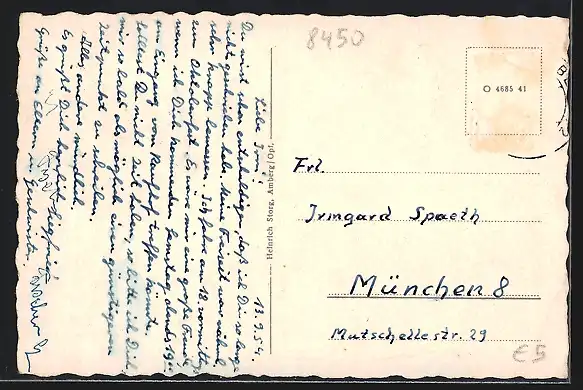 13.9.54.
Liebe Irmi!
Du wirst schon entschuldigen, daß ich Dir so lange
nicht geschrieben habe. Meine Freizeit war nämlich
sehr knapp bemessen. Ich fahre am 18. vormittag
zum Oktoberfest. Es wäre mir eine große Freude
wenn ich Dich kommenden Samstag abends 19
am Eingang vom Kaufhof treffen könnte.
Solltest Du nicht Zeit haben, so bitte ich Dich
mir so bald als möglich einen günstigeren
Zeitpunkt zu schreiben.
Alles andere mündlich.
Es grüßt Dich herzlichst Siegfried
Grüße an Eltern u. Geschwister.
Heinrich Storg, Amberg/Opf.
8450
O 4685 41
Frl.
Irmgard Spaeth
München 8
Mutschellestr. 29
€5